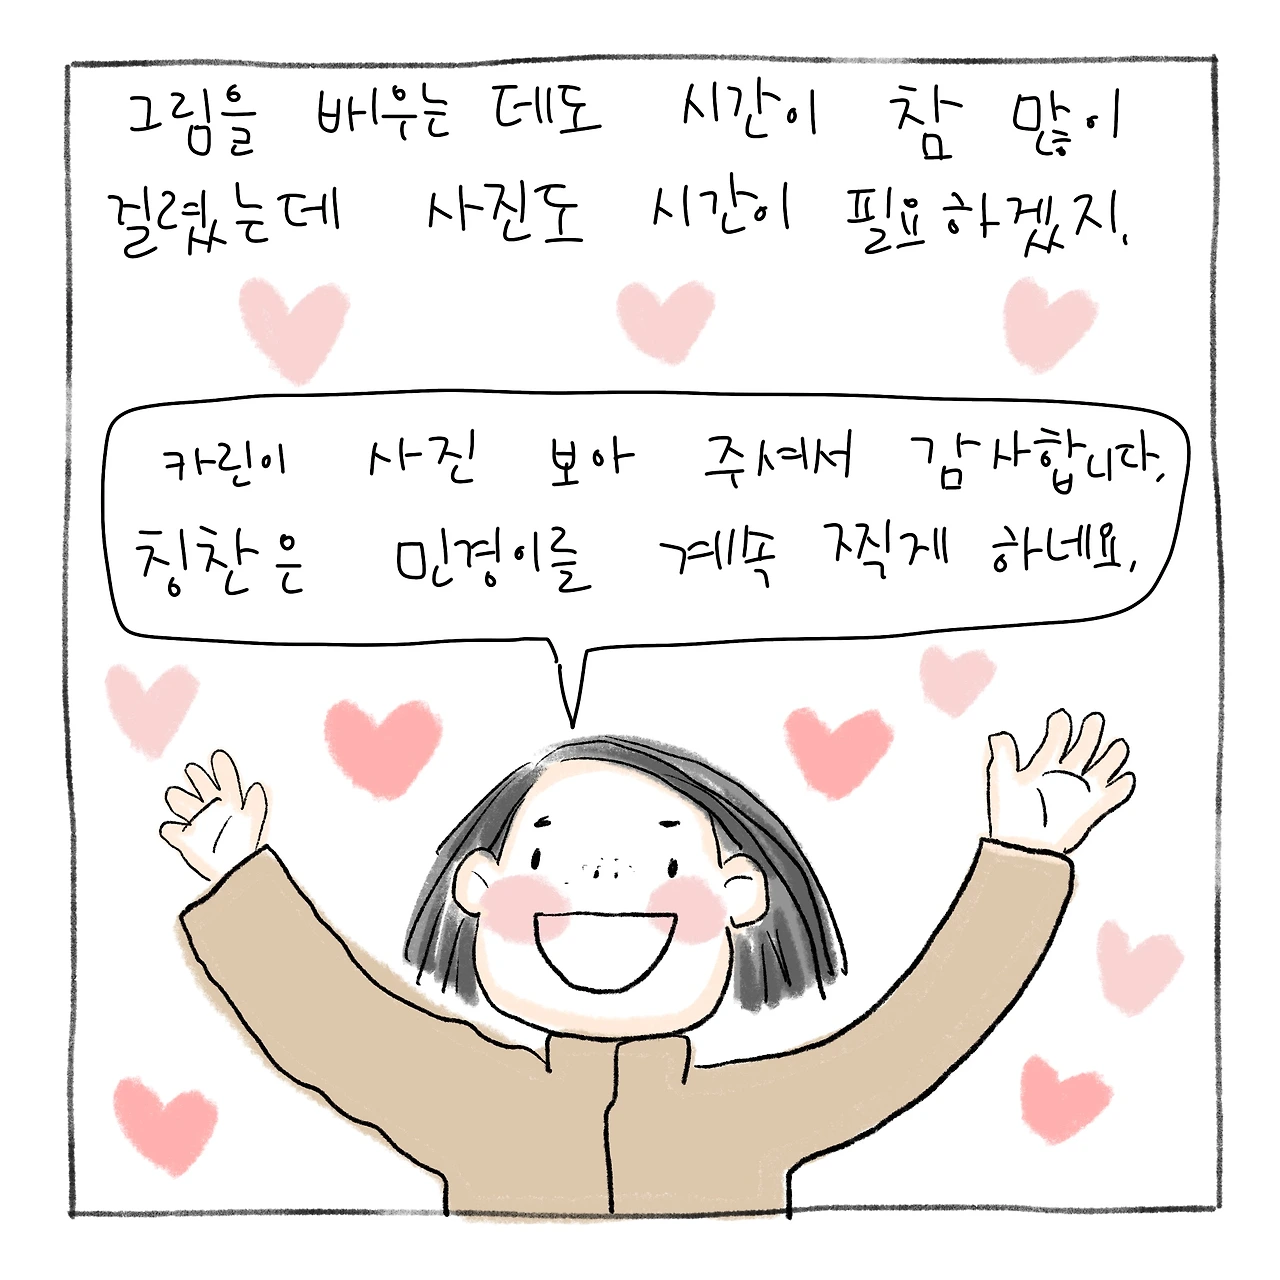 그림을 배우는 데도 시간이 참 많이
걸렸는데 사진도 시간이 필요하겠지.
카린이 사진 보아 주셔서 감사합니다.
칭찬은 민경이를 계속 찍게 하네요.